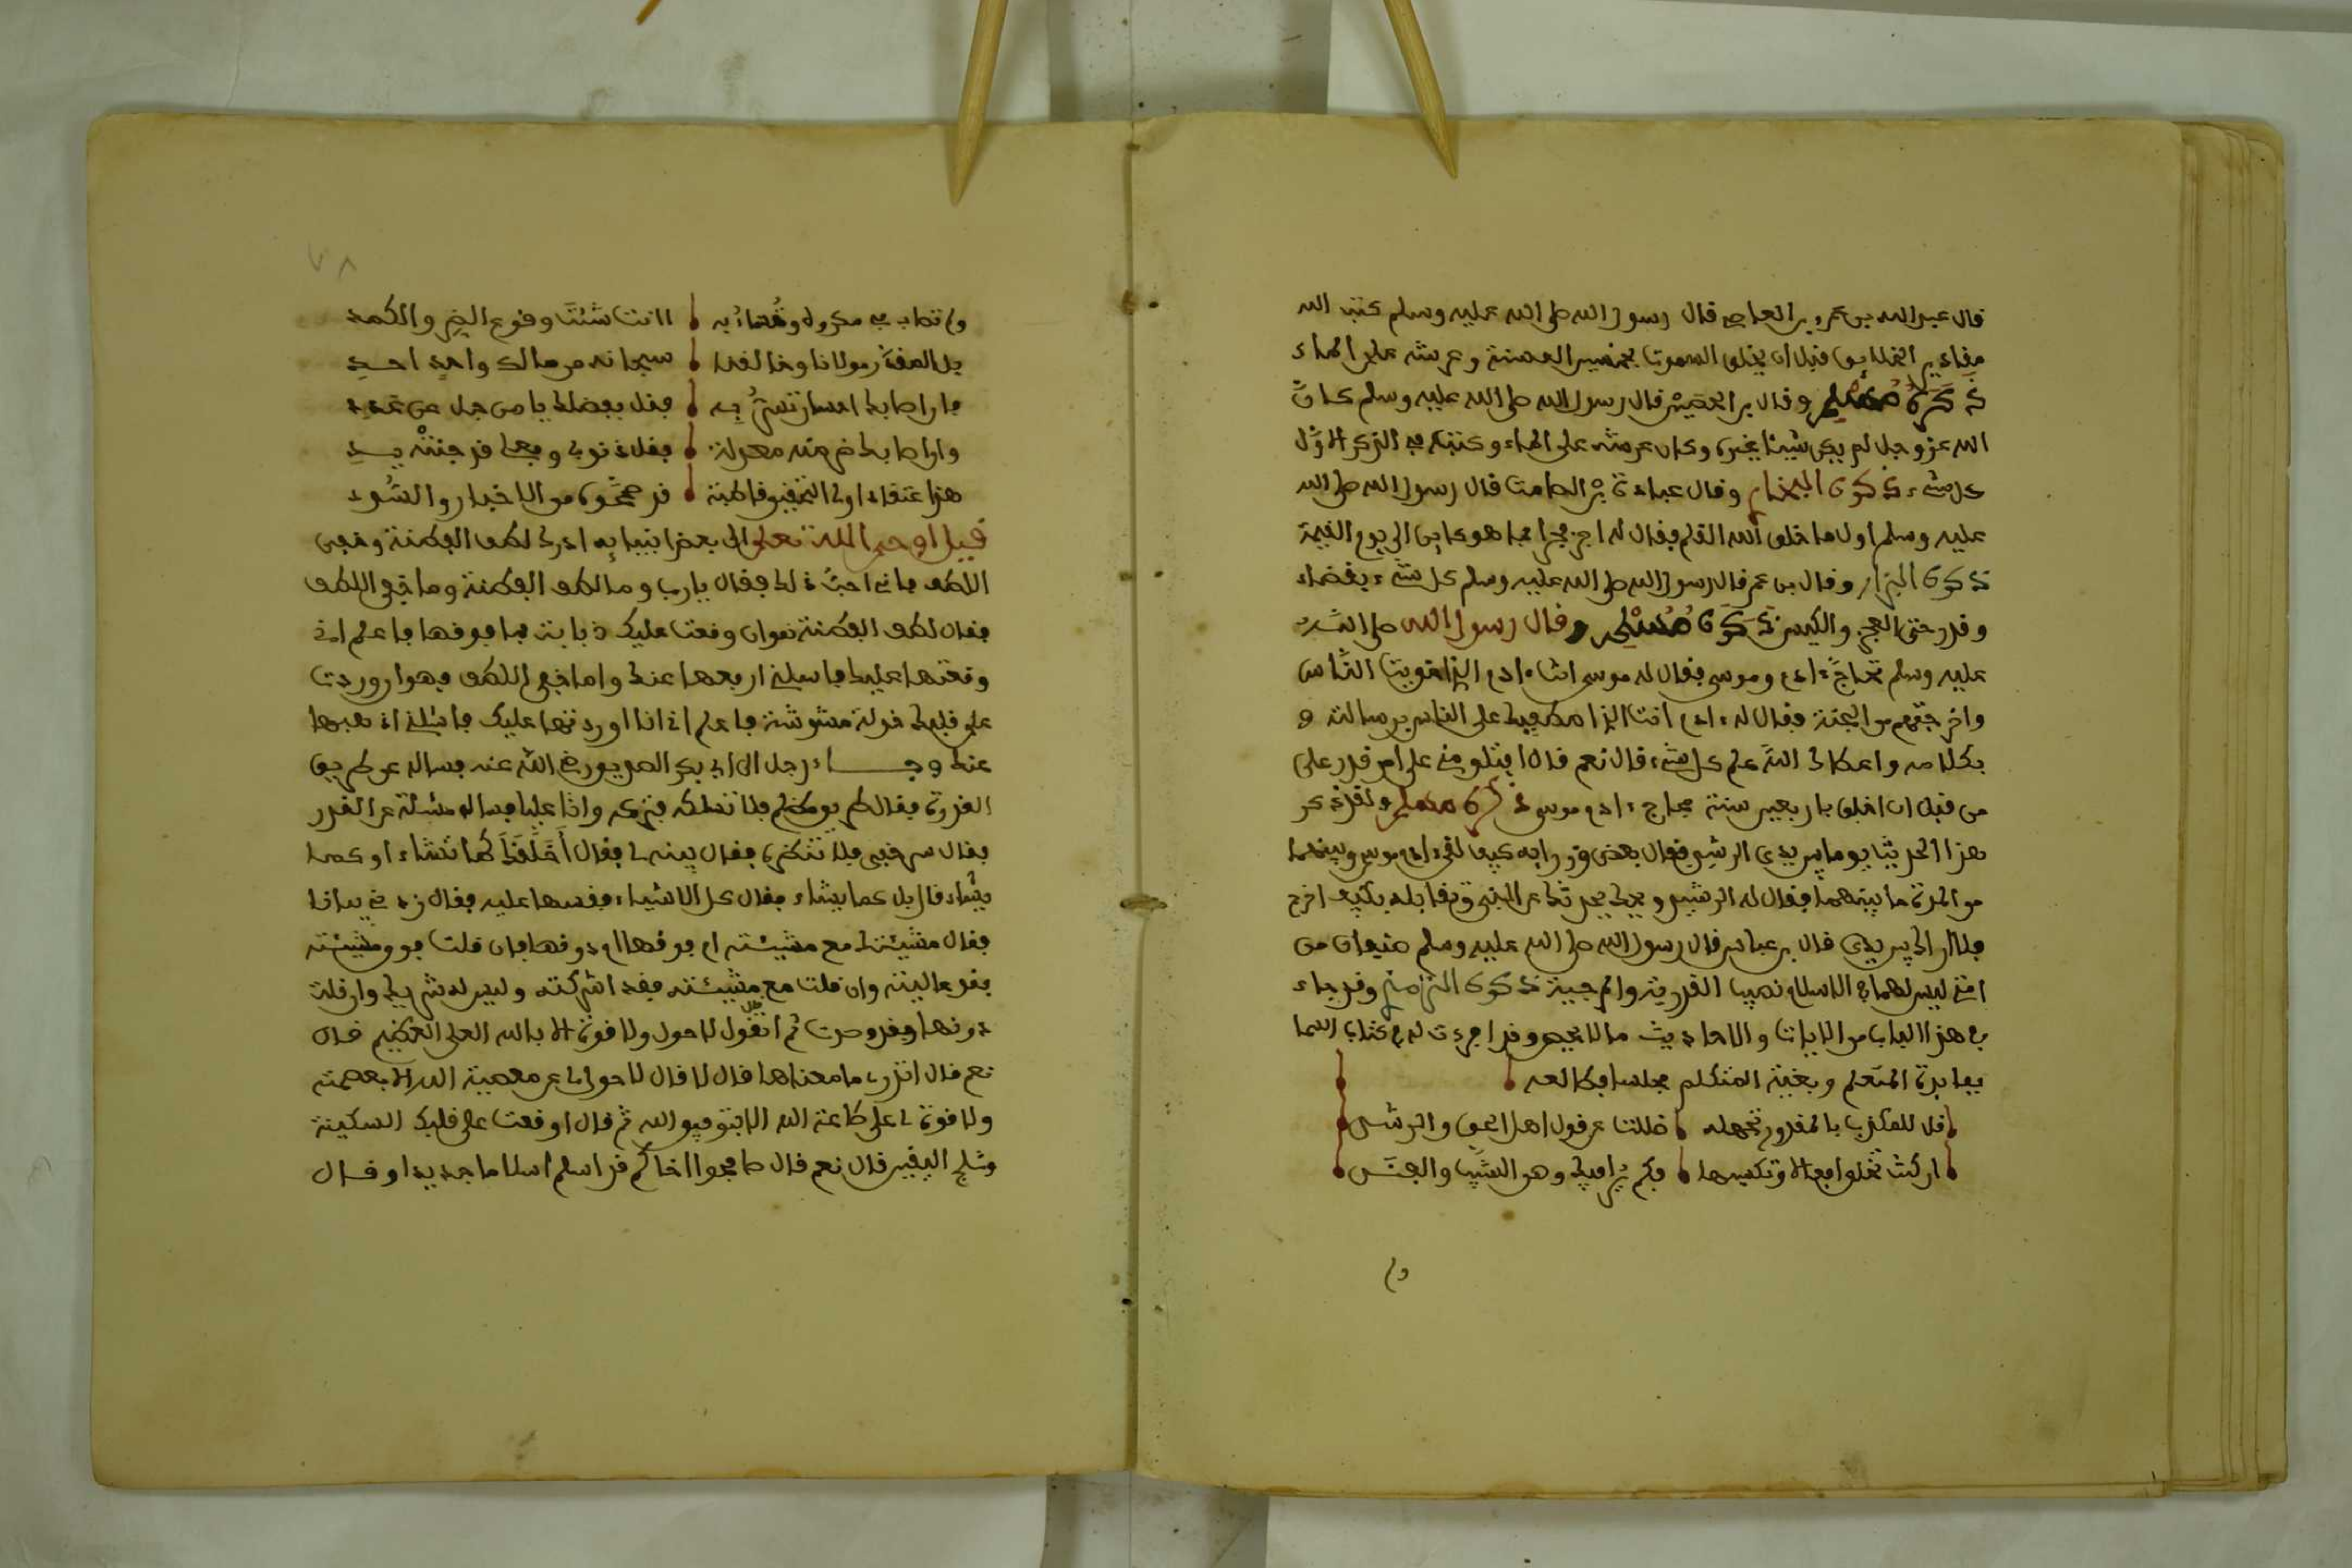 قال عبد الله بن عمرو بن العاص قال رسول الله صلى الله عليه وسلم كتب الله
مقادير الخلايق قبل ان يخلق السموت بخمسين الف سنة وعرشه على الماء
ذكره مسلم وقال بن الحصين قال رسول الله صلى الله عليه وسلم كان
الله عزوجل لم يكن شيئا غيره وكان عرشه على الماء وكتب في الذكر الاول
كل شيء ذكره البخاري وقال عبادة بن الصامت قال رسول الله صلى الله
عليه وسلم اول ما خلق الله القلم فقال له اجر فجرا بما هو كاين الى يوم القيمة
ذكره البزار وقال بن عمر قال رسول الله صلى الله عليه وسلم كل شيء بقضاء
وقدر حتى العجز والكيس ذكره مسلم وقال رسول الله صلى الله
عليه وسلم تحاج ءادم وموسى فقال له موسى انت ءادم الذي اغويت الناس
واخرجتهم من الجنة فقال له ءادم انت الذي اصطفيك على الناس برسالته و
بكلامه واعطاك الله علم كل شيء قال نعم قال افتلومني على امر قدر علي
من قبل ان اخلق باربعين سنة فحاج ءادم موسى ذكره مسلم ولقد ذكر
هذا الحديث يوما بين يدي الرشيد فقال بعض كيف لقي ءادم موسى وبينهما
من المدة ما بينهما فقال له الرشيد ويحك يحدثك عن النبي وتقابله بكيف اخرج
فلا اراك بين يدي قال بن عباس قال رسول الله صلى الله عليه وسلم صنفان من
امتي ليس لهما في الاسلام نصيب القدرية والمرجية ذكره الترمذي وقد جاء
في هذا الباب من الايات والاحاديث ما لا يحصر وقد اجردت له في كتاب اسما
بفايدة المتعلم وبغية المتكلم مجلسا فطالعه
قل للمكذب بالمقدور تجهله ضللت عن قول اهل الحق والرشد
ان كنت تخلو افعالا وتكسبها فكم يراميك وهو الشيب والجسد
ولم
ولم تصاب بمكروه وتُصاء به لا انت شئت وقوع الضر والكمد
بل المقدر مولانا وخالقنا سبحانه من مالك واحد احد
فان اصابك احسان تسر به فقل بفضلك يا من جل عن عدد
وان اصابك ضر منه معدلة فقل ذنوبي وفعلي قد جنته يدي
هذا اعتقاد اولى التحقيق فاطبة قد صححوه من الاخبار والسند
قيل اوحى الله تعلى الى بعض انبيايه ادرك لطف الفطنة وخفي
اللطف فاني احب ذلك فقال يارب وما لطف الفطنة وما خفي اللطف
فقال لطف الفطنة هو ان وقعت عليك ذبابة فما فوقها فاعلم اني
وقعتها عليك فاسلني ارفعها عنك واما خفي اللطف فهو ان وردت
على قلبك فولة مشوشة فاعلم اني انا اوردتها عليك فاسلني اذهبها
عنك وجاء رجل الى ابي بكر الصديق رضي الله عنه فساله عن طريق
القدرة فقال طريق مظلم فلا تسلكه فتركه واتا عليا فساله مسئلة عن القدر
فقال سر خفي فلا تنكره فقال بينه لي فقال أخلقك كما تشاء او كما
يشاء قال بل كما يشاء فقال كل الاشياء فقسها عليه فقال زدني بيانا
فقال مشيئتك مع مشيئته ام فوقها ام دونها فان قلت فوق مشيئته
فقد غالبته وان قلت مع مشيئته فقد اشركته وليس له شريك وان قلت
دونها فقد وحدت ثم اتقول لا حول ولا قوة الا بالله العلي العظيم قال
نعم قال اتدري ما معناها قال لا قال لا حول لي عن معصية الله الا بعصمته
ولا قوة لي على طاعة الله الا بتوفيق الله ثم قال اوقعت على قلبك السكينة
وثلج اليقين قال نعم قال صافحوا اخاكم قد اسلم اسلاما جديدا وقال